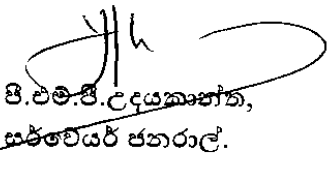 පී.එම්.පී.උදයකාන්ත,
සර්වේයර් ජනරාල්.